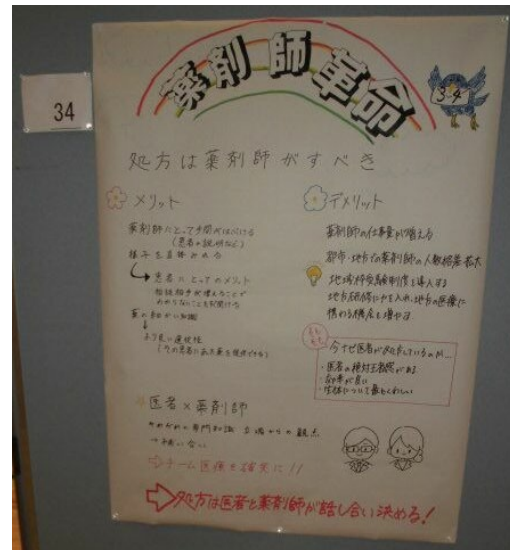 34
薬剤師革命
3-4
処方は薬剤師がすべき
メリット
薬剤師にとって手間がはぶける
(患者の説明など)
様子を直接みれる
患者にとってのメリット
相談相手が増えることで
わからないことも聞ける
薬の細かい知識
より良い選択性
(その患者にあった薬を提供できる)
デメリット
薬剤師の仕事量が増える
都市・地方での薬剤師の人数格差拡大
地域枠受験制度を導入する
地方研修に力を入れ、地方の医療に
携わる機会を増やす
今なぜ医者が処方しているのか…
・医者の絶対王者感がある
・効率が良い
・生体について最もくわしい
医者×薬剤師
それぞれの専門知識 立場からの観点
→補い合い
⇨チーム医療を確実に!!
⇨処方は医者と薬剤師が話し合い決める!